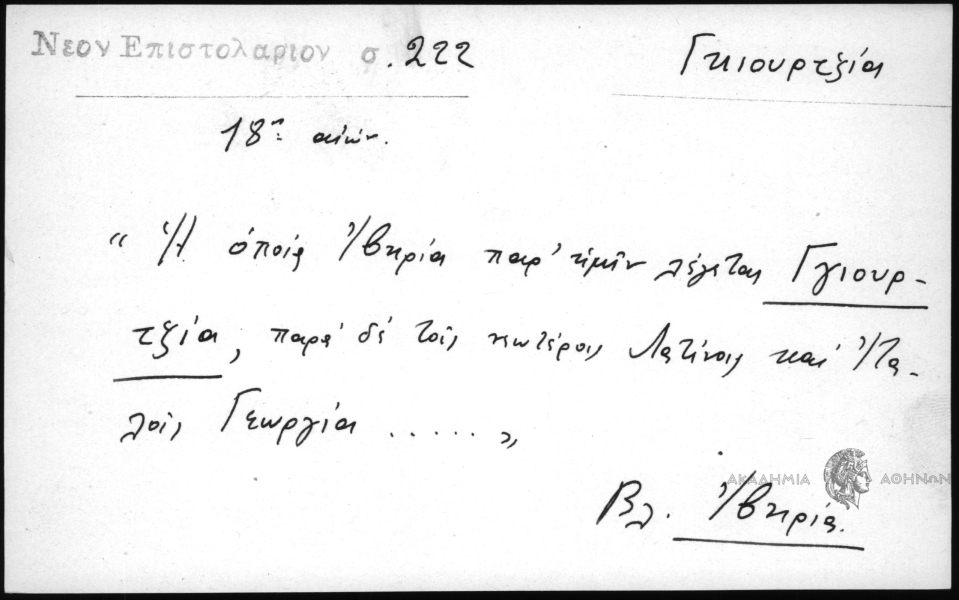 Νεον Επιστολαριον σ. 222
Γκιουρτζία
18ος αιών.
" Ἡ ὁποία Ἰβηρία παρ' ἡμῖν λέγεται Γγιουρ-
τζία, παρά δέ τοῖς νεωτέροις Λατίνοις καί Ἰτα-
λοῖς Γεωργία ..... "
ΑΚΑΔΗΜΙΑ ΑΘΗΝΩΝ
Βλ. Ἰβηρία.